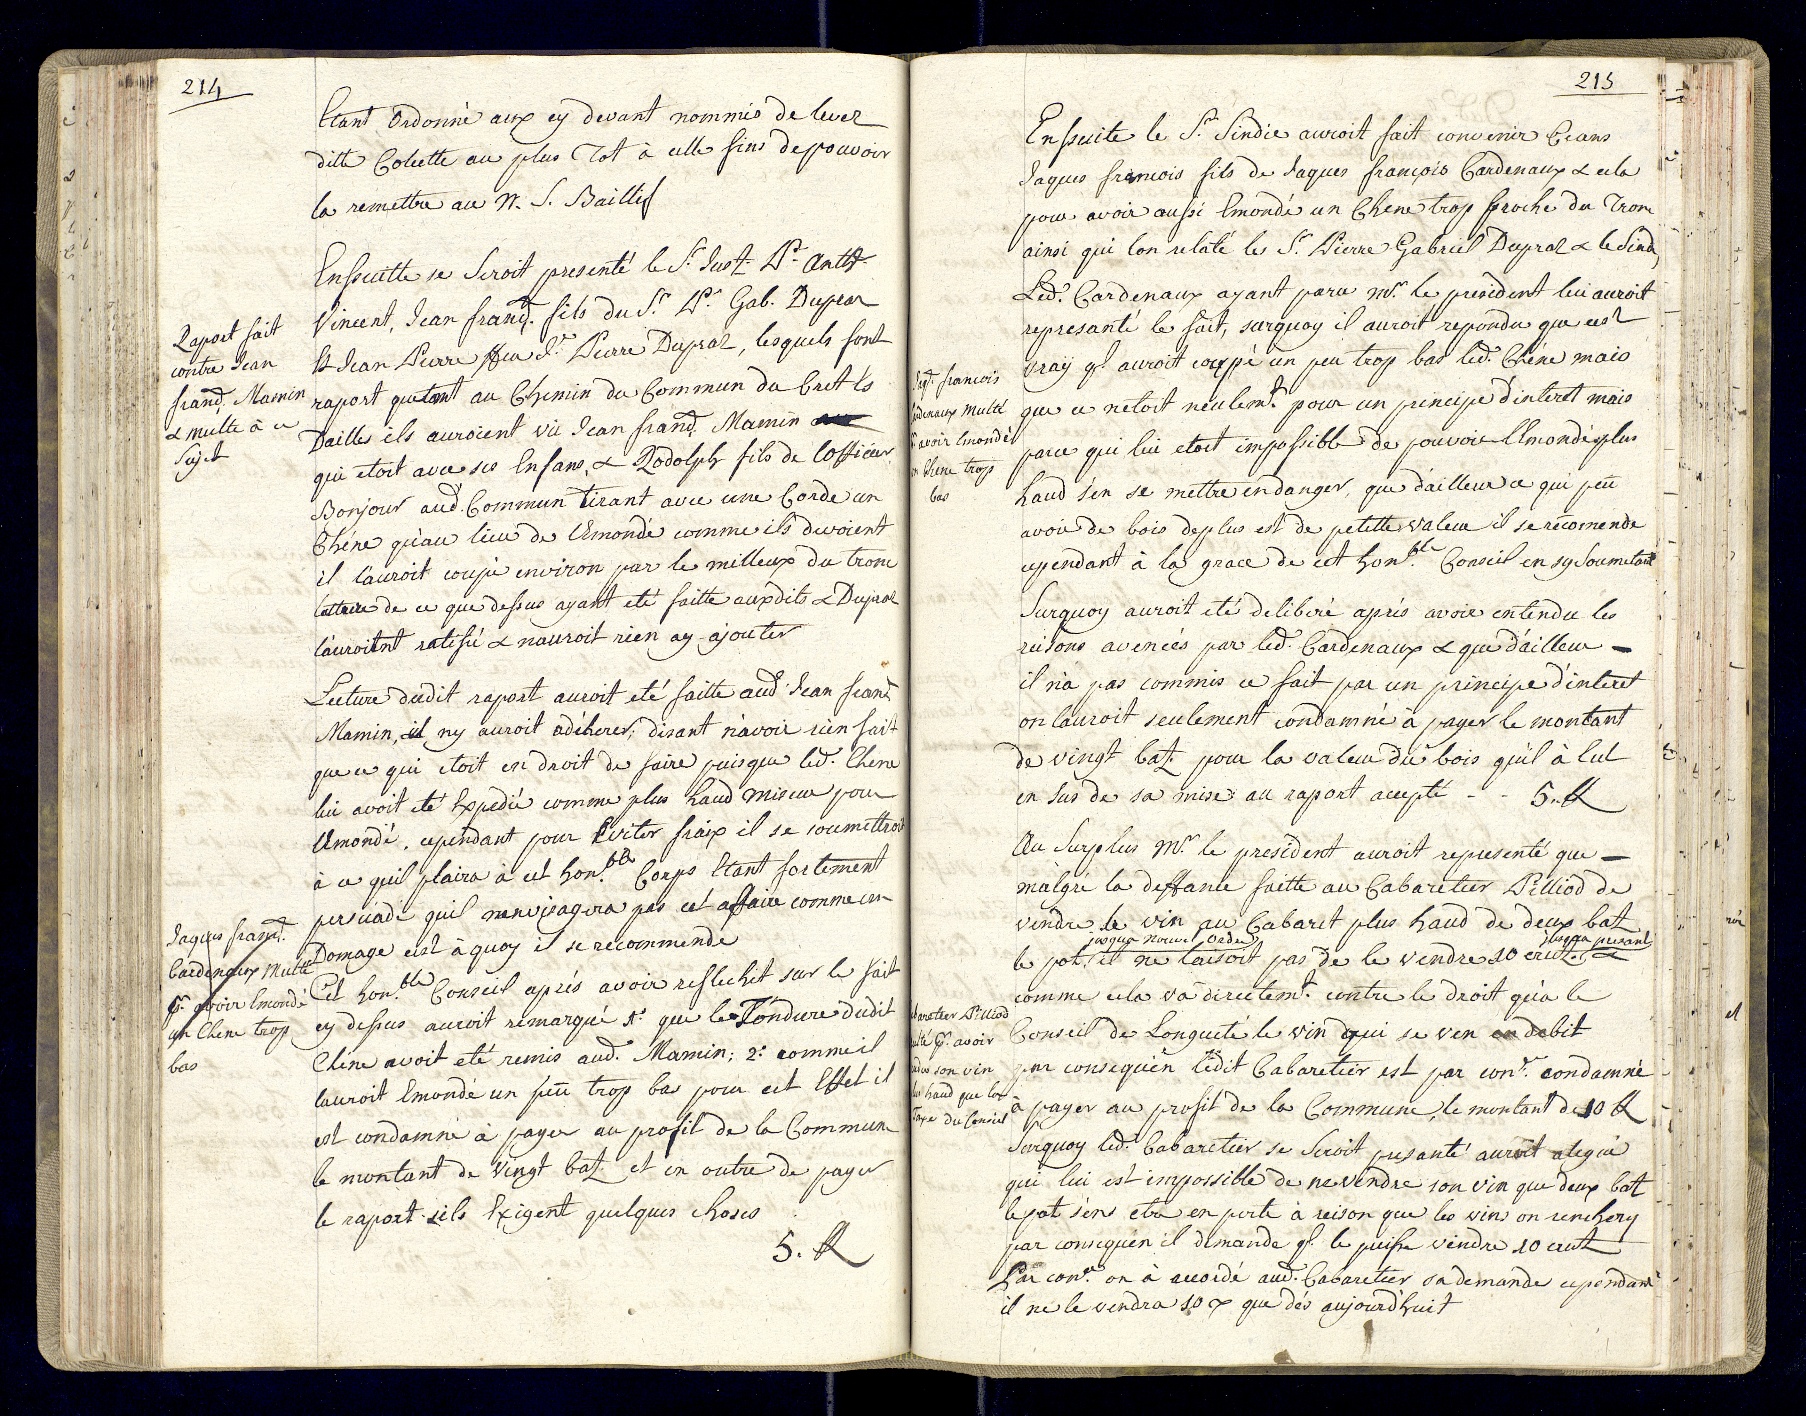 214
Etant Ordonné aux cy devant nommés de lever
ditte Colecte au plus Tot à celle fins de pouvoir
la remettre au N. S. Baillif
Ensuitte se seroit presenté le Sr. Just. Pr. Antt.
Vincent, Jean frand. fils du Sr. Pr. Gab. Dupraz
Et Jean Pierre ffeu Jn. Pierre Dupraz, lesquels font
raport quetant au Chemin du Commun du Cret Es
Dailles ils auroient vû Jean frand. Mamin
qui etoit avec ses Enfans, & Rodolph fils de lofficier
Bonjour aud. Commun tirant avec une Corde un
Chéne qu'au lieu de lEmondé comme ils devoient
il lauroit coupé environ par le milleux du tronc
lecture de ce que dessus ayant eté faitte auxdits & Dupraz
lauroitent ratifié & nauroit rien ay ajouter
Raport fait
contre Jean
frand. Mamin
& multe à ce
Sujet
Lecture dudit raport auroit eté faitte aud. Jean frand.
Mamin, il ny auroit adéherer; disant n'avoir rien fait
que ce qui etoit en droit de faire puisque led. Chene
lui avoit eté Expedié comme plus haud miseur pour
lEmondé, cependant pour Eviter fraix il se soumettroit
à ce quil plaira à cet hon.ble Corps Etant fortement
persuadé quil nenvisagera pas cet affaire comme un
Domage cest à quoy il se recommende
Cet hon.ble Conseil aprés avoir reflechit sur le fait
cy dessus auroit remarqué 1o. que le Tondure dudit
Chéne avoit eté remis aud. Mamin; 2o. comme il
lauroit Emondé un peu trop bas pour cet Effet il
est condamné à payer au profit de la Commune
le montant de Vingt batz. et en outre de payer
le raport sils Exigent quelques choses
5. ff
Jaques frand.
Cardenaux Multé
pr. avoir Emondé
un Chene trop
bas
215
Ensuite le Sr. Sindic auroit fait convenir Ceans
Jaques francois fils de Jaques françois Cardenaux & cela
pour avoir aussi Emondé un Chene trop proche du Tronc
ainsi qui lon relaté les Sr. Pierre Gabriel Dupraz & le Sind.
Led. Cardenaux ayant paru Mr. le president lui auroit
represanté le fait, surquoy il auroit repondu que cest
vraÿ ql. auroit coupé un peu trop bas led. Chéne mais
que ce netoit neulemt. pour un principe d'interet mais
parce qui lui etoit impossible de pouvoir lEmondé plus
haud s'en se mettre en danger, que d'ailleur ce qui peu
avoir de bois deplus est de petitte valeur il se recomende
cependant à la grace de cet hon.ble Conseil en sy Soumetant
Surquoy auroit eté deliberé aprés avoir entendu les
reisons avencés par led. Cardenaux & que d'ailleur
il n'a pas commis ce fait par un principe d'interet
on lauroit seulement condamné à payer le montant
de vingt batz. pour la valeur du bois qu'il à Eut
en sus de sa mise au raport acepté - - 5. ff
Jaq. francois
Cardenaux Multé
pr. avoir Emondé
un Chene trop
bas
Au Surplus Mr. le president auroit representé que
malgré la deffance faitte au Cabaretier Pilliod de
vendre le vin au Cabaret plus haud de deux batz
jusqua nouvel Ordre
jusqua presant
le pot, il ne laisoit pas de le vendre 10 crutz. &
comme cela va directemt. contre le droit qu'a le
Conseil de Longueté le vin qui se ven en debit
par consequen ledit Cabaretier est par con.r condamné
à payer au profit de la Commune, le montant de 10 ff
Surquoy led. Cabaretier se seroit presanté auroit alegué
qui lui est impossible de ne vendre son vin que deux batz
le pot s'ens etre en perte à reison que les vins on rencherÿ
par consequen il demande ql. le puisse vendre 10 crutz
Par con.r on à accordé aud. Cabaretier sa demande cependant
il ne le vendra 10 x que dés aujourd'huit
Cabaretier Pilliod
multé pr. avoir
vendu son vin
plus haud que la
Taxe du Conseil